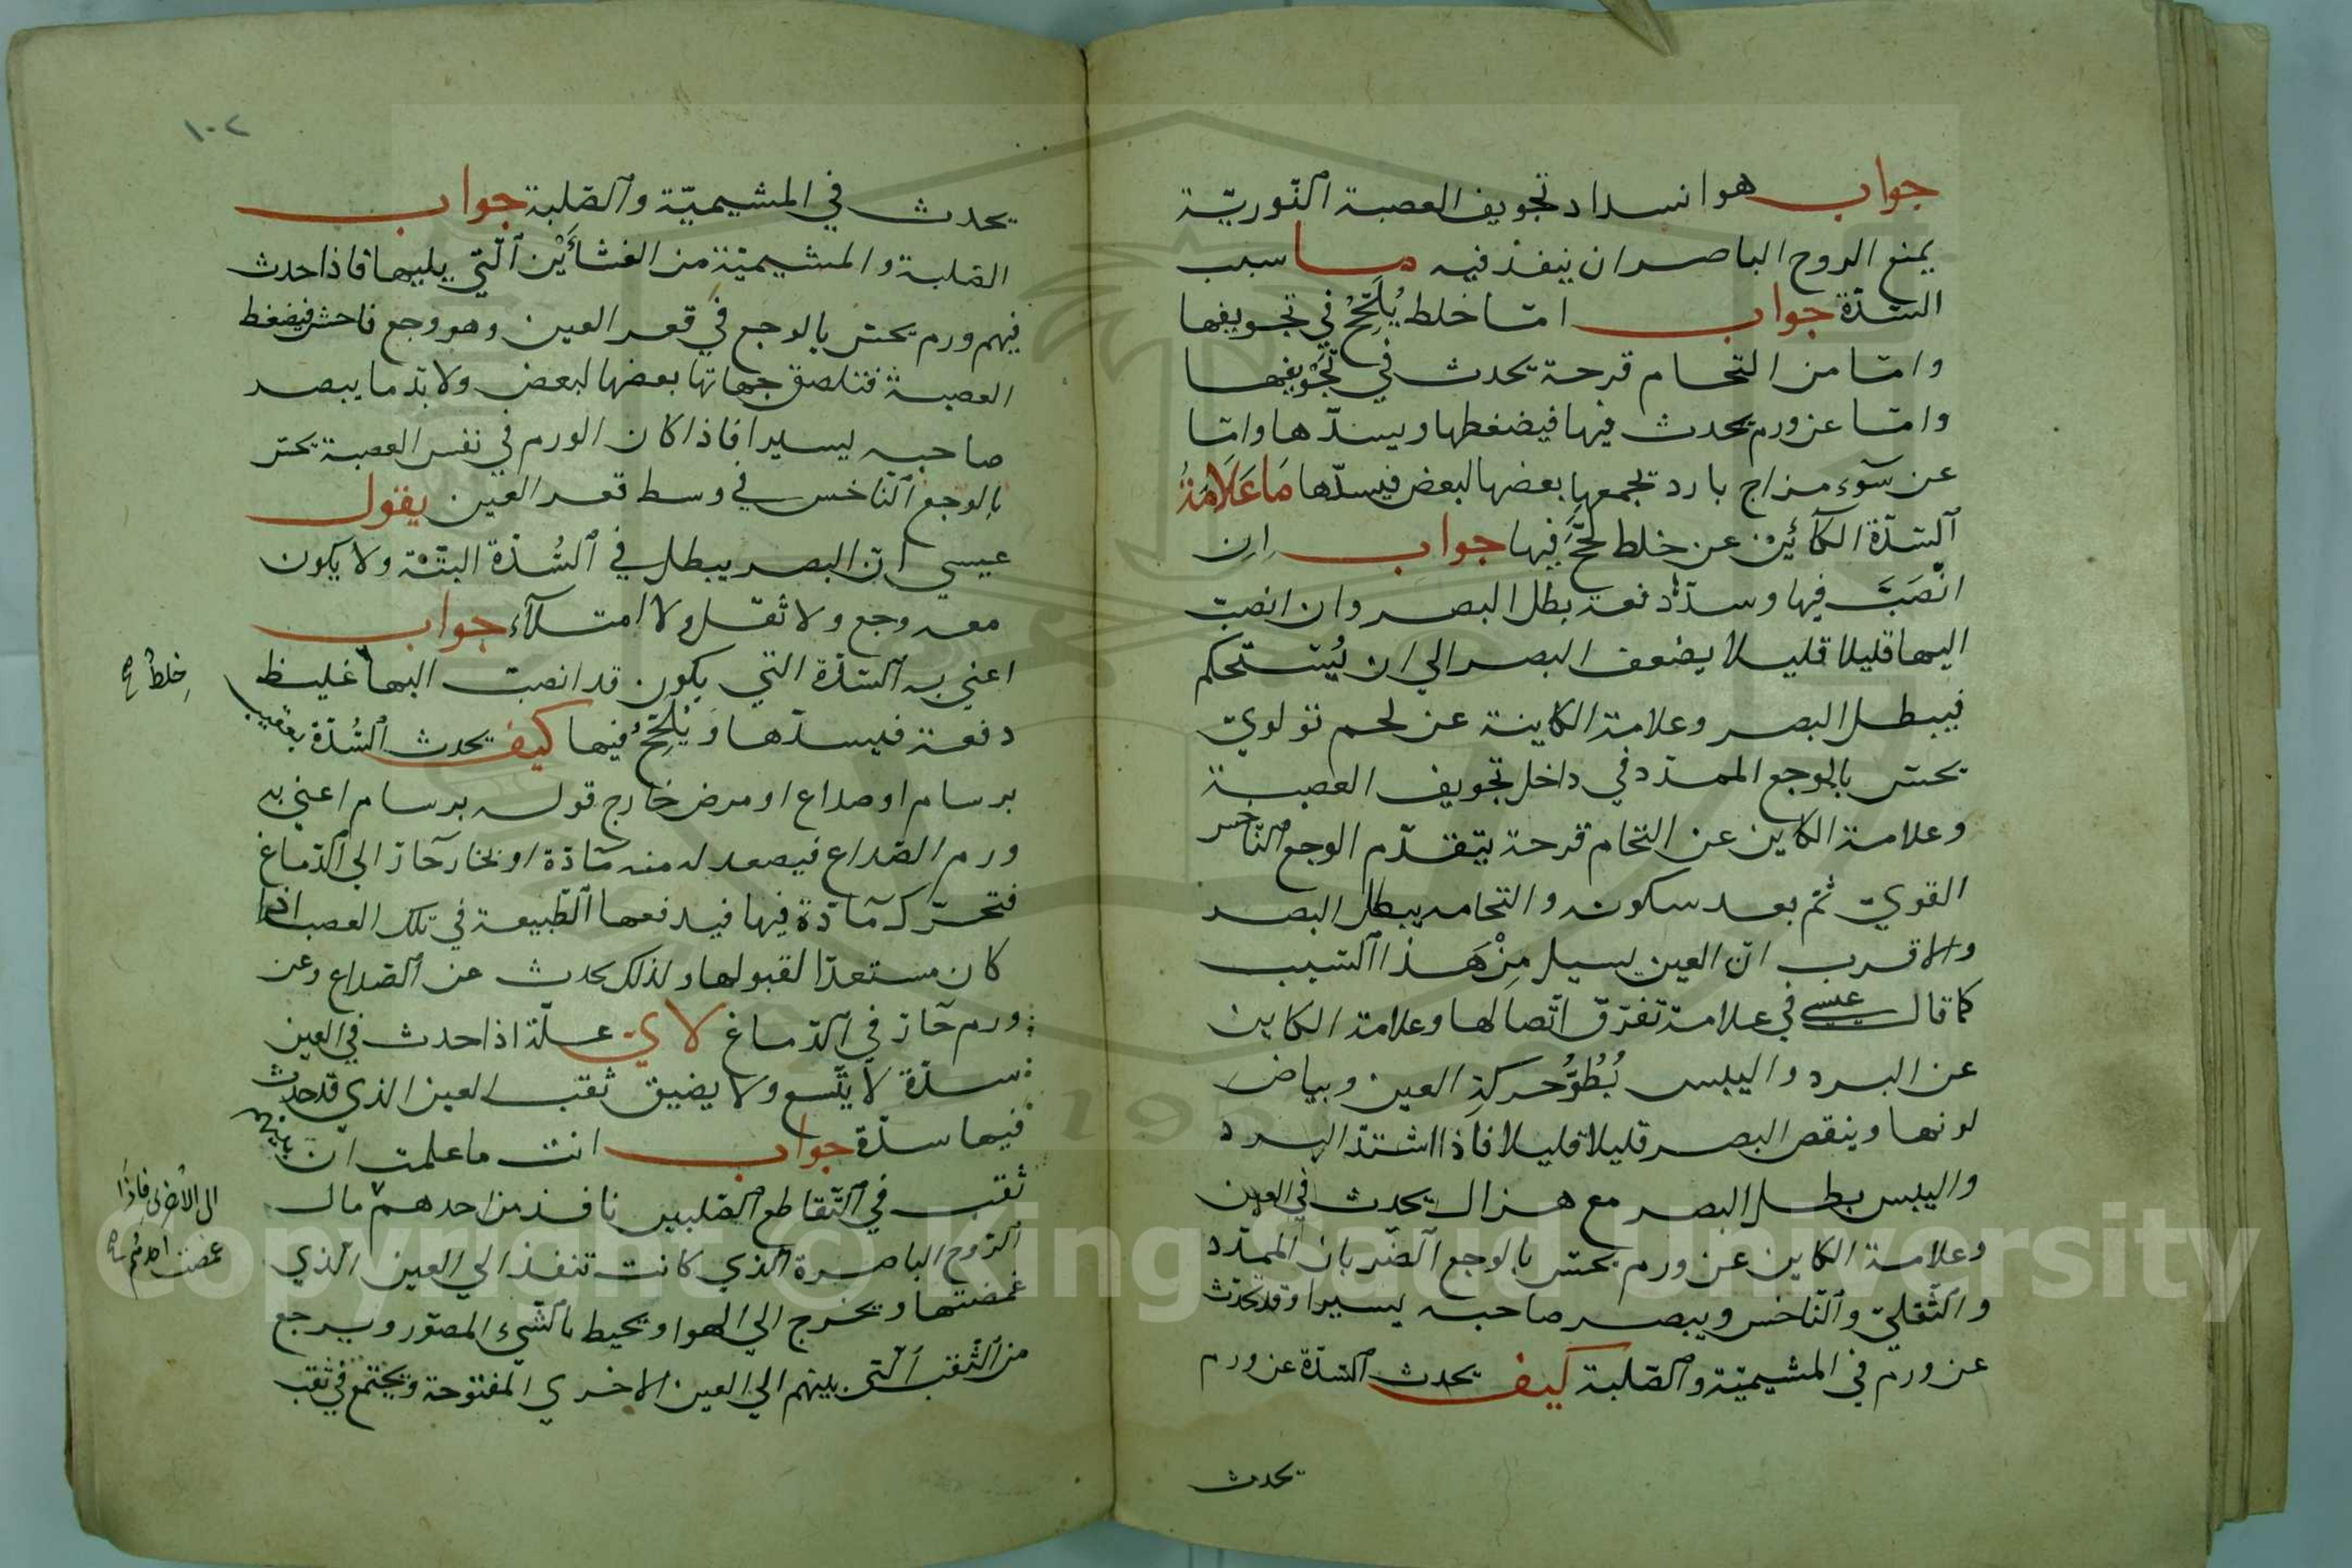 جواب هو انسداد تجويف العصبة النّوريّة
يمنع الروح الباصر ان ينفذ فيه ما سبب
السّدّة جواب امّا خلط يُلَحِّجُ في تجويفها
وامّا من التحام قرحة يحدث في تجويفها
وامّا عن ورم يحدث فيها فيضغطها ويسدّها وامّا
عن سوٓء مزاج بارد تجمعها بعضها لبعض فيسدّها مَا عَلَامَةُ
السّدّة الكآئن عن خلط لحَّج فيها جواب ان
انْصَبَّ فيها وسدّ دفعة بطل البصر وان انصبّ
اليها قليلا قليلا يضعف البصر الي ان يُسْتحكم
فيبطل البصر وعلامة الكاينة عن لحم تولوي
يحسّ بالوجع الممدّد في داخل تجويف العصبة
وعلامة الكاين عن التحام قرحة يتقدّم الوجع النّاخس
القويّ ثمّ بعد سكونه والتحامه يبطل البصر
والاقرب انّ العين يسيل مِنْ هَذا السّبب
كما قال عيسى في علامة تفرّق اتّصالها وعلامة الكاين
عن البرد واليبس بُطُوُّ حركة العين وبياض
لونها وينقص البصر قليلا قليلا فاذا اشتدّ البرد
واليبس بطل البصر مع هزال يحدث في العين
وعلامة الكاين عن ورم يحسّ بالوجع الضّربان الممدّد
والثّقليّ والنّاخس ويبصر صاحبه يسيرا وقد تحدث
عن ورم في المشيميّة والصّلبة كيف يحدث السّدّة عن ورم
يحدث
١٠٢
يحدث في المشيميّة والصّلبة جواب
الصّلبة والمشيميّة من الغشائَيْن الّتي يليها فاذا حدث
فيهم ورم يحسّ بالوجع في قعر العين وهو وجع فاحش فيضغط
العصبة فتلصق جهاتها بعضها لبعض ولا بدّ ما يبصر
صاحبه يسيرا فاذا كان الورم في نفس العصبة يحسّ
بالوجع النّاخس في وسط قعر العين يقول
عيسي انّ البصر يبطل في السُّدّة البتّة ولا يكون
معه وجع ولا ثقل ولا امتلآء جواب
اعني به السّدّة التي يكون قد انصبّ اليها غليظ
خلط صح
دفعة فيسدّها وَيُلَحِّجُ فيها كيف يحدث السُّدّة بعقيب
برسام او صداع او مرض خارج قوله برسام اعني به
ورم الصّداع فيصعد له منه مادّة او بخار حآرّ الي الدّماغ
فتحرّك مآدّة فيها فيدفعها الطّبيعة في تلك العصب اذا
كان مستعدّا لقبولها ولذلك يحدث عن الصّداع وعن
ورم حآرّ في الدّماغ لاي علّة اذا حدث في العين
سدّة لا يتّسع ولا يضيق ثقب العين الذي قد حدث
فيها سدّة جواب انت ما علمت ان بينهم
ثقب في التّقاطع الصّلبين نافذ من احدهم مال
الي الاخري فاذا
غمضت احدهم صح
الرّوح الباصرة الّذي كانت تنفذ الي العين الّذي
غمضتها ويخرج الي الهوا ويحيط بالشّيء المصوّر ويرجع
من الثّقب الّتي بينهم الي العين الاخري المفتوحة ويجتمع في ثقب
Copyright © King Saud University
1957